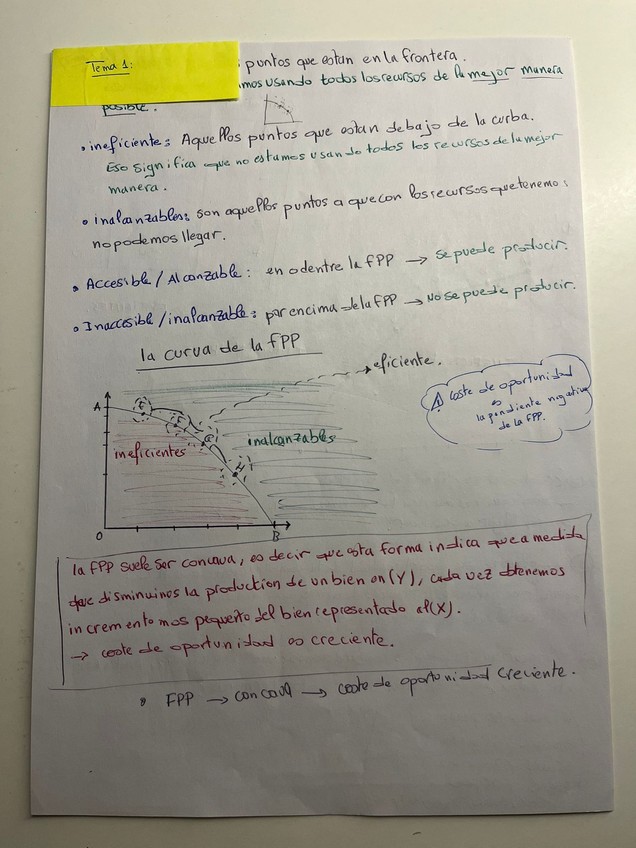 Tema 1:
: puntos que estan en la frontera.
mos usando todos los recursos de la mejor manera
posible.
• ineficiente: Aquellos puntos que estan debajo de la curba.
Eso significa que no estamos usando todos los recursos de la mejor
manera.
• inalcanzables: son aquellos puntos a que con los recursos que tenemos
no podemos llegar.
• Accesible / Alcanzable: en o dentre la FPP → se puede producir.
• Inaccesible / inalcanzable: por encima de la FPP → No se puede producir.
la curva de la FPP
eficiente.
A
ineficientes
inalcanzables
H
O
B
⚠ coste de oportunidad
es
la pendiente negativa
de la FPP.
la FPP suele ser concava, es decir que esta forma indica que a medida
que disminuimos la production de un bien en (Y), cada vez obtenemos
incremento mas pequeño del bien representado al (X).
→ coste de oportunidad es creciente.
• FPP → concava → coste de oportunidad creciente.